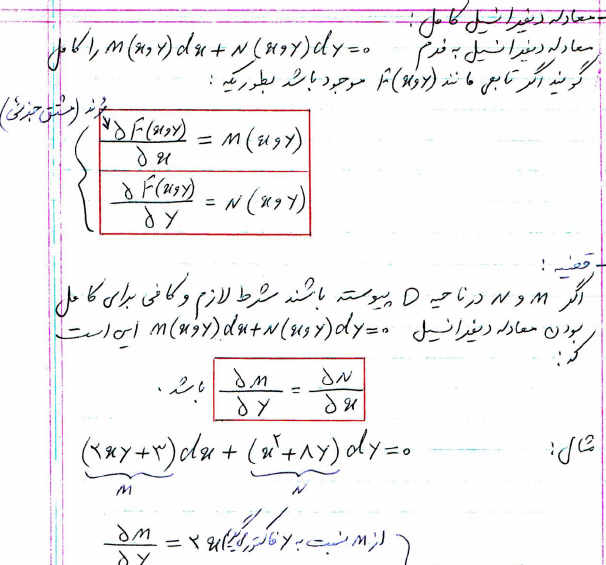 - معادله دیفرانسیل کامل:
معادله دیفرانسیل به فرم M(x,y)dx + N(x,y)dy = 0 را کامل
گویند اگر تابعی مانند F(x,y) موجود باشد بطوریکه:
(مشتق جزئی)
∂F(x,y)/∂x = M(x,y)
∂F(x,y)/∂y = N(x,y)
- قضیه:
اگر M و N در ناحیه D پیوسته باشند شرط لازم و کافی برای کامل
بودن معادله دیفرانسیل M(x,y)dx + N(x,y)dy = 0 این است
که:
∂M/∂y = ∂N/∂x باشد.
مثال: (۲xy+۳)dx + (x²+۸y)dy = 0
M N
∂M/∂y = ۲x از M نسبت به y فاکتور گیری